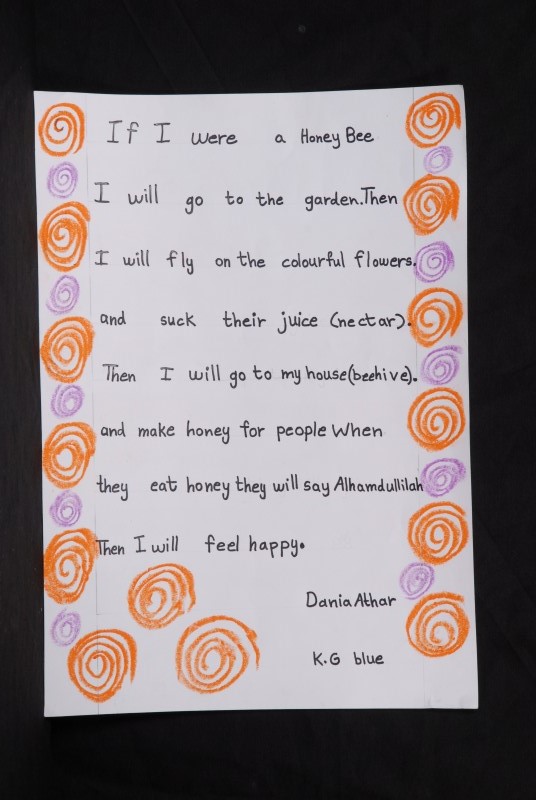 If I were a Honey Bee
I will go to the garden.Then
I will fly on the colourful flowers.
and suck their juice (nectar).
Then I will go to my house(beehive).
and make honey for people When
they eat honey they will say Alhamdullilah
Then I will feel happy.
Dania Athar
K.G blue